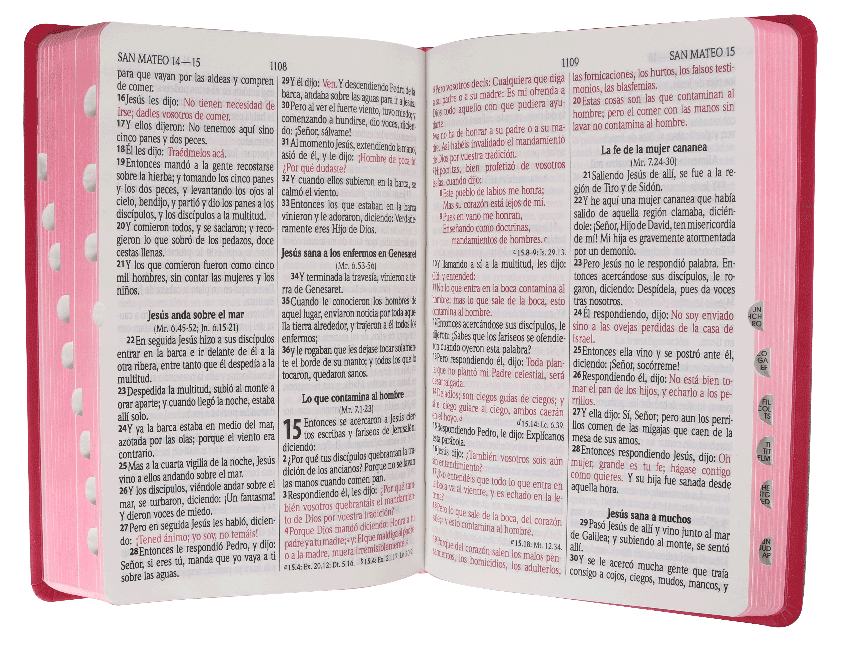 SAN MATEO 14—15
1108
para que vayan por las aldeas y compren
de comer.
16Jesús les dijo: No tienen necesidad de
irse; dadles vosotros de comer.
17Y ellos dijeron: No tenemos aquí sino
cinco panes y dos peces.
18Él les dijo: Traédmelos acá.
19Entonces mandó a la gente recostarse
sobre la hierba; y tomando los cinco panes
y los dos peces, y levantando los ojos al
cielo, bendijo, y partió y dio los panes a los
discípulos, y los discípulos a la multitud.
20Y comieron todos, y se saciaron; y reco-
gieron lo que sobró de los pedazos, doce
cestas llenas.
21Y los que comieron fueron como cinco
mil hombres, sin contar las mujeres y los
niños.
Jesús anda sobre el mar
(Mr. 6.45-52; Jn. 6.15-21)
22En seguida Jesús hizo a sus discípulos
entrar en la barca e ir delante de él a la
otra ribera, entre tanto que él despedía a la
multitud.
23Despedida la multitud, subió al monte a
orar aparte; y cuando llegó la noche, estaba
allí solo.
24Y ya la barca estaba en medio del mar,
azotada por las olas; porque el viento era
contrario.
25Mas a la cuarta vigilia de la noche, Jesús
vino a ellos andando sobre el mar.
26Y los discípulos, viéndole andar sobre el
mar, se turbaron, diciendo: ¡Un fantasma!
Y dieron voces de miedo.
27Pero en seguida Jesús les habló, dicien-
do: ¡Tened ánimo; yo soy, no temáis!
28Entonces le respondió Pedro, y dijo:
Señor, si eres tú, manda que yo vaya a ti
sobre las aguas.
29Y él dijo: Ven. Y descendiendo Pedro de la
barca, andaba sobre las aguas para ir a Jesús.
30Pero al ver el fuerte viento, tuvo miedo; y
comenzando a hundirse, dio voces, dicien-
do: ¡Señor, sálvame!
31Al momento Jesús, extendiendo la mano,
asió de él, y le dijo: ¡Hombre de poca fe!
¿Por qué dudaste?
32Y cuando ellos subieron en la barca, se
calmó el viento.
33Entonces los que estaban en la barca
vinieron y le adoraron, diciendo: Verdade-
ramente eres Hijo de Dios.
Jesús sana a los enfermos en Genesaret
(Mr. 6.53-56)
34Y terminada la travesía, vinieron a tie-
rra de Genesaret.
35Cuando le conocieron los hombres de
aquel lugar, enviaron noticia por toda aque-
lla tierra alrededor, y trajeron a él todos los
enfermos;
36y le rogaban que les dejase tocar solamen-
te el borde de su manto; y todos los que lo
tocaron, quedaron sanos.
Lo que contamina al hombre
(Mr. 7.1-23)
15 Entonces se acercaron a Jesús cier-
tos escribas y fariseos de Jerusalén,
diciendo:
2¿Por qué tus discípulos quebrantan la tra-
dición de los ancianos? Porque no se lavan
las manos cuando comen pan.
3Respondiendo él, les dijo: ¿Por qué tam-
bién vosotros quebrantáis el mandamien-
to de Dios por vuestra tradición?
4Porque Dios mandó diciendo: Honra a tu
padre y a tu madre; y: El que maldiga al padre
o a la madre, muera irremisiblemente.
a 15.4: Ex. 20.12; Dt. 5.16. b 15.4: Ex. 21.17; Lv. 20.9.
1109
SAN MATEO 15
Pero vosotros decís: Cualquiera que diga
a su padre o a su madre: Es mi ofrenda a
Dios todo aquello con que pudiera ayu-
darte,
ya no ha de honrar a su padre o a su ma-
dre. Así habéis invalidado el mandamiento
de Dios por vuestra tradición.
Hipócritas, bien profetizó de vosotros
Isaías, cuando dijo:
8Este pueblo de labios me honra;
Mas su corazón está lejos de mí.
9Pues en vano me honran,
Enseñando como doctrinas,
mandamientos de hombres.
15.8-9: Is. 29.13.
Y llamando a sí a la multitud, les dijo:
Oíd, y entended:
No lo que entra en la boca contamina al
hombre; mas lo que sale de la boca, esto
contamina al hombre.
Entonces acercándose sus discípulos, le
dijeron: ¿Sabes que los fariseos se ofendie-
ron cuando oyeron esta palabra?
Pero respondiendo él, dijo: Toda plan-
ta que no plantó mi Padre celestial, será
desarraigada.
Dejadlos; son ciegos guías de ciegos; y
si el ciego guiare al ciego, ambos caerán
en el hoyo.
15.14: Lc. 6.39.
Respondiendo Pedro, le dijo: Explícanos
esta parábola.
Jesús dijo: ¿También vosotros sois aún
sin entendimiento?
¿No entendéis que todo lo que entra en
la boca va al vientre, y es echado en la le-
trina?
Pero lo que sale de la boca, del corazón
sale; y esto contamina al hombre.
15.18: Mt. 12.34.
Porque del corazón salen los malos pen-
samientos, los homicidios, los adulterios,
las fornicaciones, los hurtos, los falsos testi-
monios, las blasfemias.
20Estas cosas son las que contaminan al
hombre; pero el comer con las manos sin
lavar no contamina al hombre.
La fe de la mujer cananea
(Mr. 7.24-30)
21Saliendo Jesús de allí, se fue a la re-
gión de Tiro y de Sidón.
22Y he aquí una mujer cananea que había
salido de aquella región clamaba, dicién-
dole: ¡Señor, Hijo de David, ten misericordia
de mí! Mi hija es gravemente atormentada
por un demonio.
23Pero Jesús no le respondió palabra. En-
tonces acercándose sus discípulos, le ro-
garon, diciendo: Despídela, pues da voces
tras nosotros.
24Él respondiendo, dijo: No soy enviado
sino a las ovejas perdidas de la casa de
Israel.
25Entonces ella vino y se postró ante él,
diciendo: ¡Señor, socórreme!
26Respondiendo él, dijo: No está bien to-
mar el pan de los hijos, y echarlo a los pe-
rrillos.
27Y ella dijo: Sí, Señor; pero aun los perri-
llos comen de las migajas que caen de la
mesa de sus amos.
28Entonces respondiendo Jesús, dijo: Oh
mujer, grande es tu fe; hágase contigo
como quieres. Y su hija fue sanada desde
aquella hora.
Jesús sana a muchos
29Pasó Jesús de allí y vino junto al mar
de Galilea; y subiendo al monte, se sentó
allí.
30Y se le acercó mucha gente que traía
consigo a cojos, ciegos, mudos, mancos, y